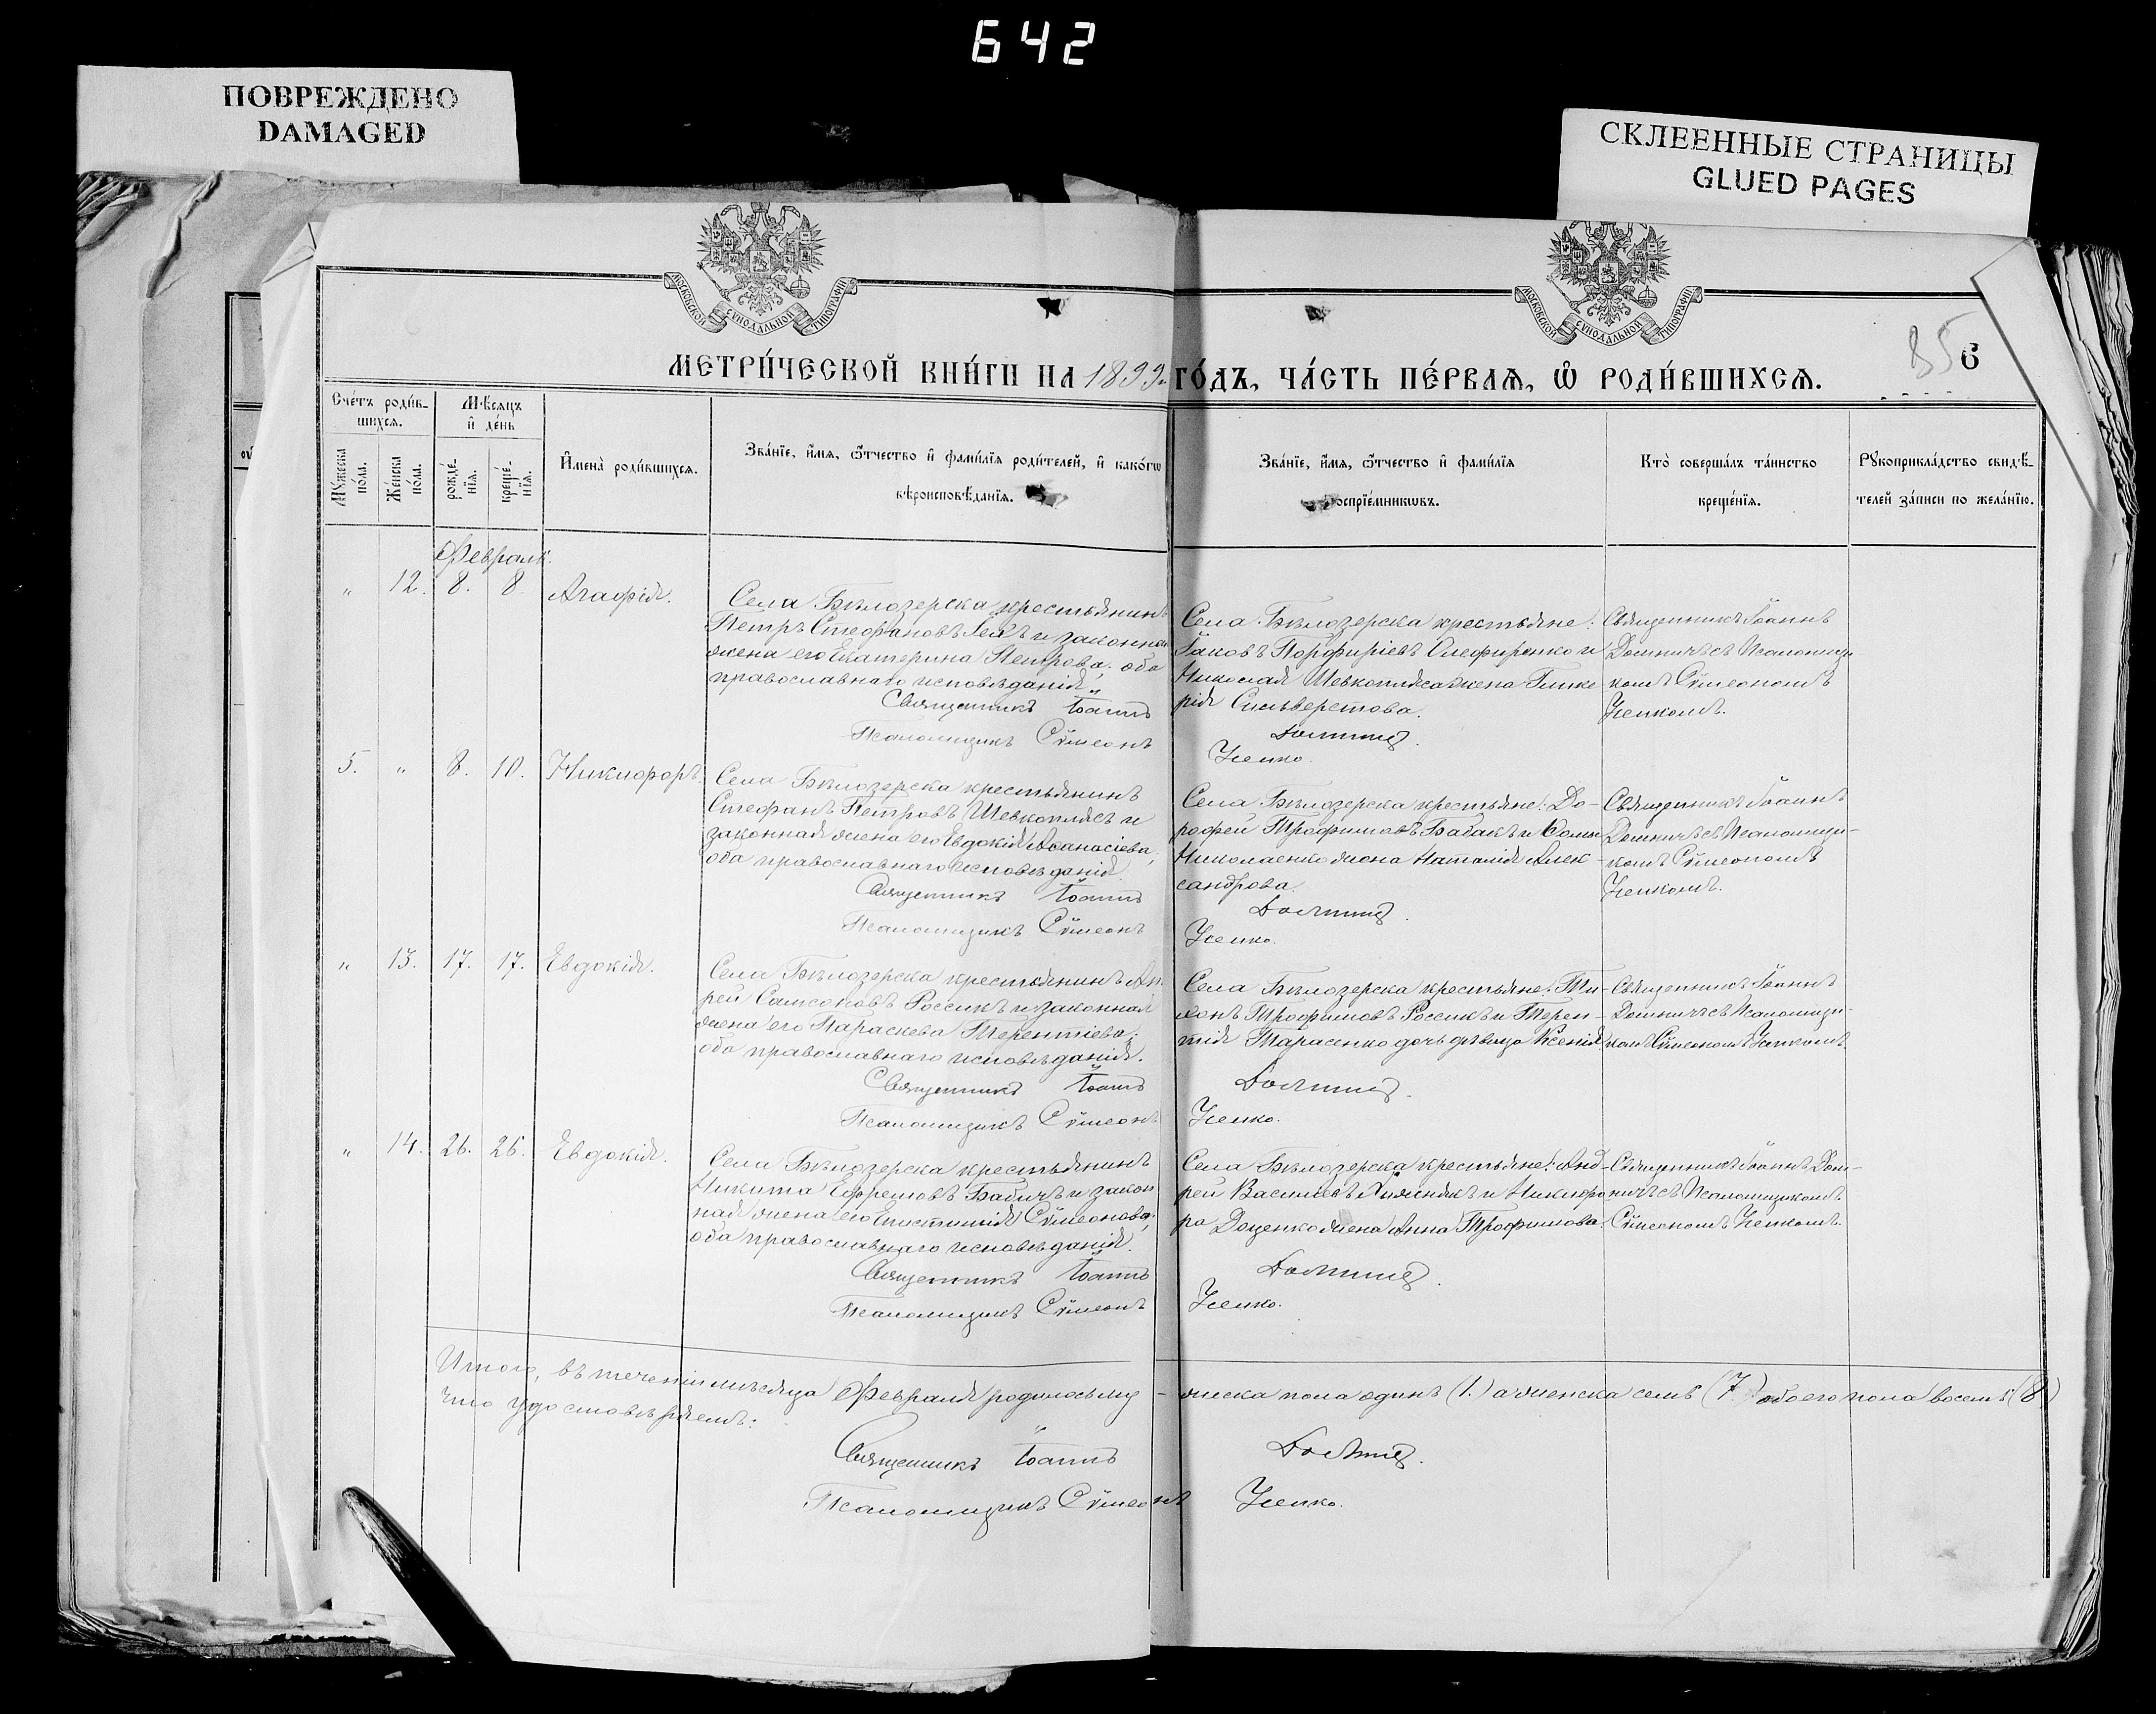 642
ПОВРЕЖДЕНО
DAMAGED
СКЛЕЕННЫЕ СТРАНИЦЫ
GLUED PAGES
МОСКОВСКОЙ СѴНОДАЛЬНОЙ ТИПОГРАФІИ
МОСКОВСКОЙ СѴНОДАЛЬНОЙ ТИПОГРАФІИ
85 6
МЕТРИ́ЧЕСКОЙ КНИ́ГИ НА 1899 ГО́ДЪ, ЧА́СТЬ ПЕ́РВАЯ, Ѡ РОДИ́ВШИХСЯ.
Сче́тъ роди́в-
шихся.
Мꙋ́жеска по́ла.
Же́нска по́ла.
Мѣ́сяцъ
и҆ де́нь
рожде́-
нїя.
креще́-
нїя.
И҆мена̀ роди́вшихся.
Зва́нїе, и҆́мя, ѻ҆́тчество и҆ фами́лїя роди́телей, и҆ како́гѡ
вѣроисповѣ́данїя.
Зва́нїе, и҆́мя, ѻ҆́тчество и҆ фами́лїя
оспрїе́мникѡвъ.
Кто̀ соверша́лъ та́инство
креще́нїя.
Рꙋкоприкла́дство свидѣ́-
телей за́писи по жела́нїю.
Февраль.
" 12. 8. 8. Агафія.
Села Бѣлозерска крестьянинъ
Петръ Стефановъ Гей и законная
жена его Екатерина Петрова; оба
православнаго исповѣданія.
Священникъ Іоаннъ
Псаломщикъ Сѵмеонъ
Села Бѣлозерска крестьяне:
Іаковъ Порфиріевъ Олефиренко и
Николая Шевкопляса жена Глике
рія Сильверстова.
Усенко.
Священникъ Іоаннъ
съ Псаломщи-
комъ Сѵмеономъ
Усенкомъ.
5. " 8. 10. Никифоръ.
Села Бѣлозерска крестьянинъ
Стефанъ Петровъ Шевкоплясъ и
законная жена его Евдокія Аѳанасіева,
оба православнаго исповѣданія.
Священникъ Іоаннъ
Псаломщикъ Сѵмеонъ
Села Бѣлозерска крестьяне: До-
рофей Трофимовъ Бабакъ и
Николаенко жена Наталія Алек-
сандрова.
Усенко.
Священникъ Іоаннъ
съ Псаломщи-
комъ Сѵмеономъ
Усенкомъ.
" 13. 17. 17. Евдокія.
Села Бѣлозерска крестьянинъ Анд
рей Самсоновъ Россикъ и законная
жена его Параскева Терентіева;
оба православнаго исповѣданія.
Священникъ Іоаннъ
Псаломщикъ Сѵмеонъ
Села Бѣлозерска крестьяне: Ти-
хонъ Трофимовъ Россикъ и Терен-
тія Тарасенко дочь дѣвица Ксенія.
Усенко.
Священникъ Іоаннъ
съ Псаломщи-
комъ Сѵмеономъ Усенкомъ.
" 14. 26. 26. Евдокія.
Села Бѣлозерска крестьянинъ
Никита Ефремовъ Бабичъ и закон
ная жена его Сѵмеонова,
оба православнаго исповѣданія.
Священникъ Іоаннъ
Псаломщикъ Сѵмеонъ
Села Бѣлозерска крестьяне: Анд-
рей Василіевъ и Никифо
ра Доценко жена Анна Трофимова.
Усенко.
Священникъ Іоаннъ
съ Псаломщикомъ
Сѵмеономъ Усенкомъ.
Итого, въ теченіи мѣсяца Февраля родилось му - жеска пола одинъ (1.) а женска семь (7.) обоего пола восемь (8)
Что удостовѣряемъ:
Священникъ Іоаннъ
Псаломщикъ Сѵмеонъ Усенко.